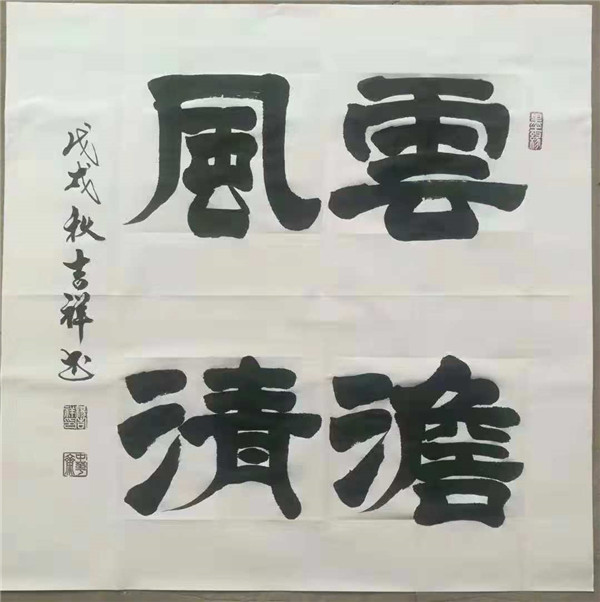 雲澹
風清
戊戌秋吉祥书